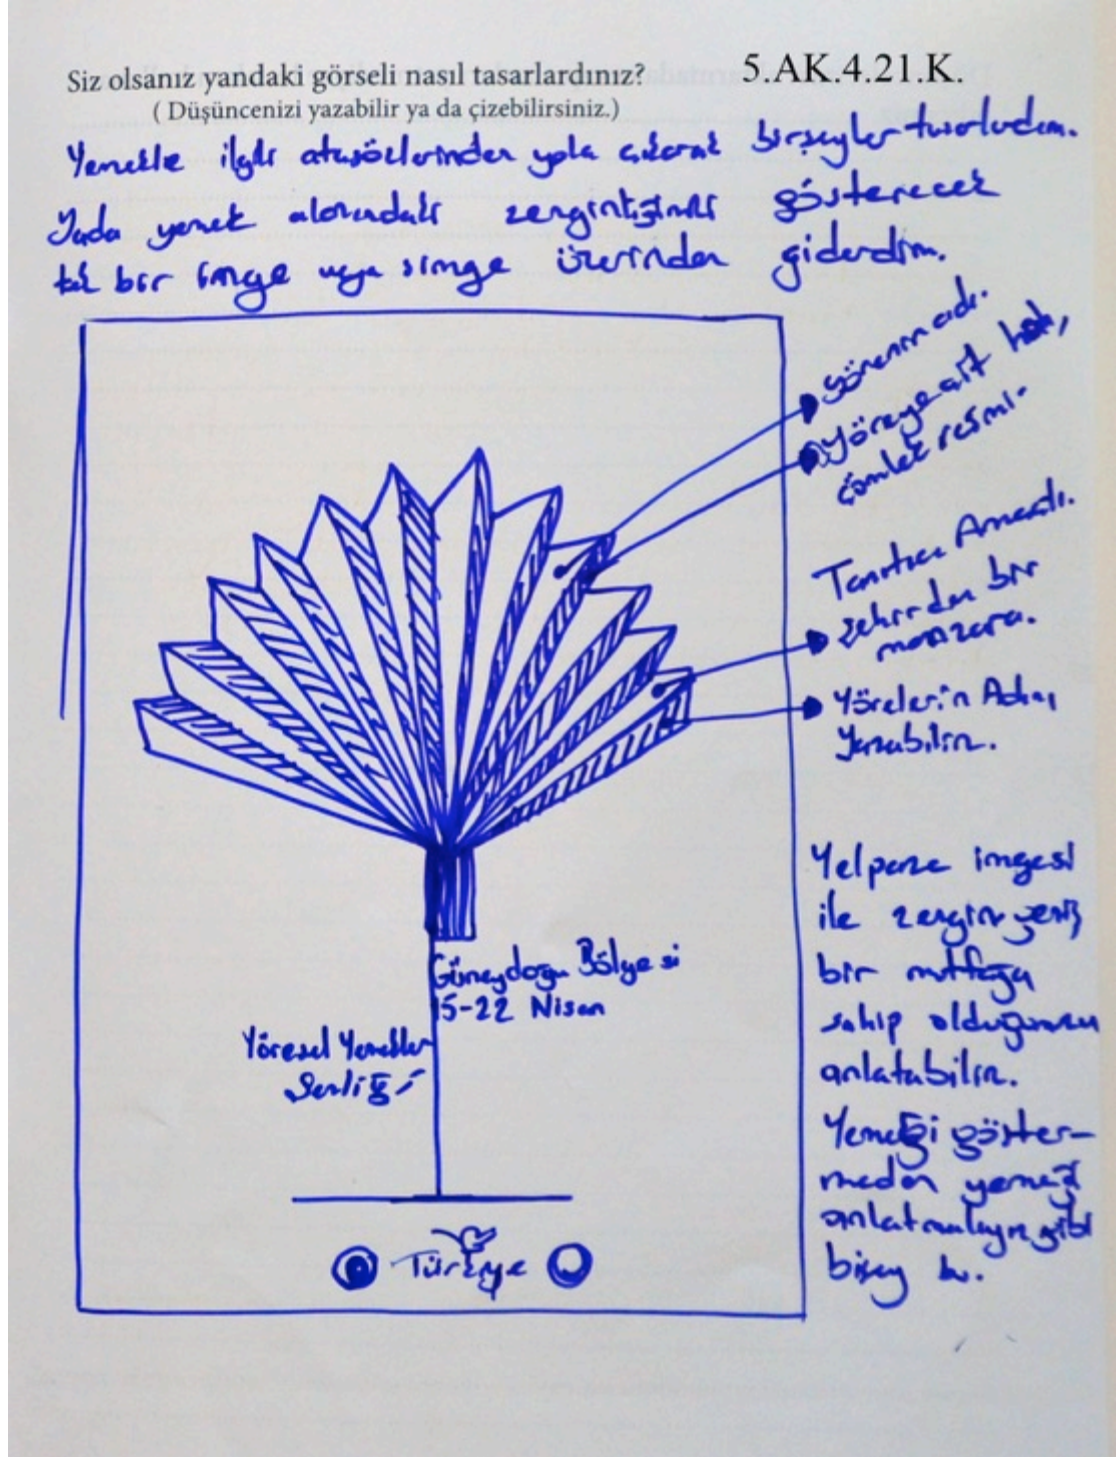 Siz olsanız yandaki görseli nasıl tasarlardınız? 5.AK.4.21.K.
( Düşüncenizi yazabilir ya da çizebilirsiniz.)
Yemekle ilgili atasözlerinden yola çıkarak birşeyler tasarlardım.
Yada yemek alanındaki zenginliğimizi gösterecek
tek bir imge veya simge üzerinden giderdim.
Yörenin adı.
Yöreye ait halı,
çömlek resmi.
Tanıtıcı Amaçlı.
şehirden bir
manzara.
Yörelerin Adını
Yazabiliriz.
Yelpaze imgesi
ile zengin geniş
bir mutfağa
sahip olduğumuzu
anlatabiliriz.
Yemeği göster-
meden yemeği
anlatmalıyız gibi
bişey bu.
Güneydoğu Bölgesi
15-22 Nisan
Yöresel Yemekler
Şenliği
Türkiye